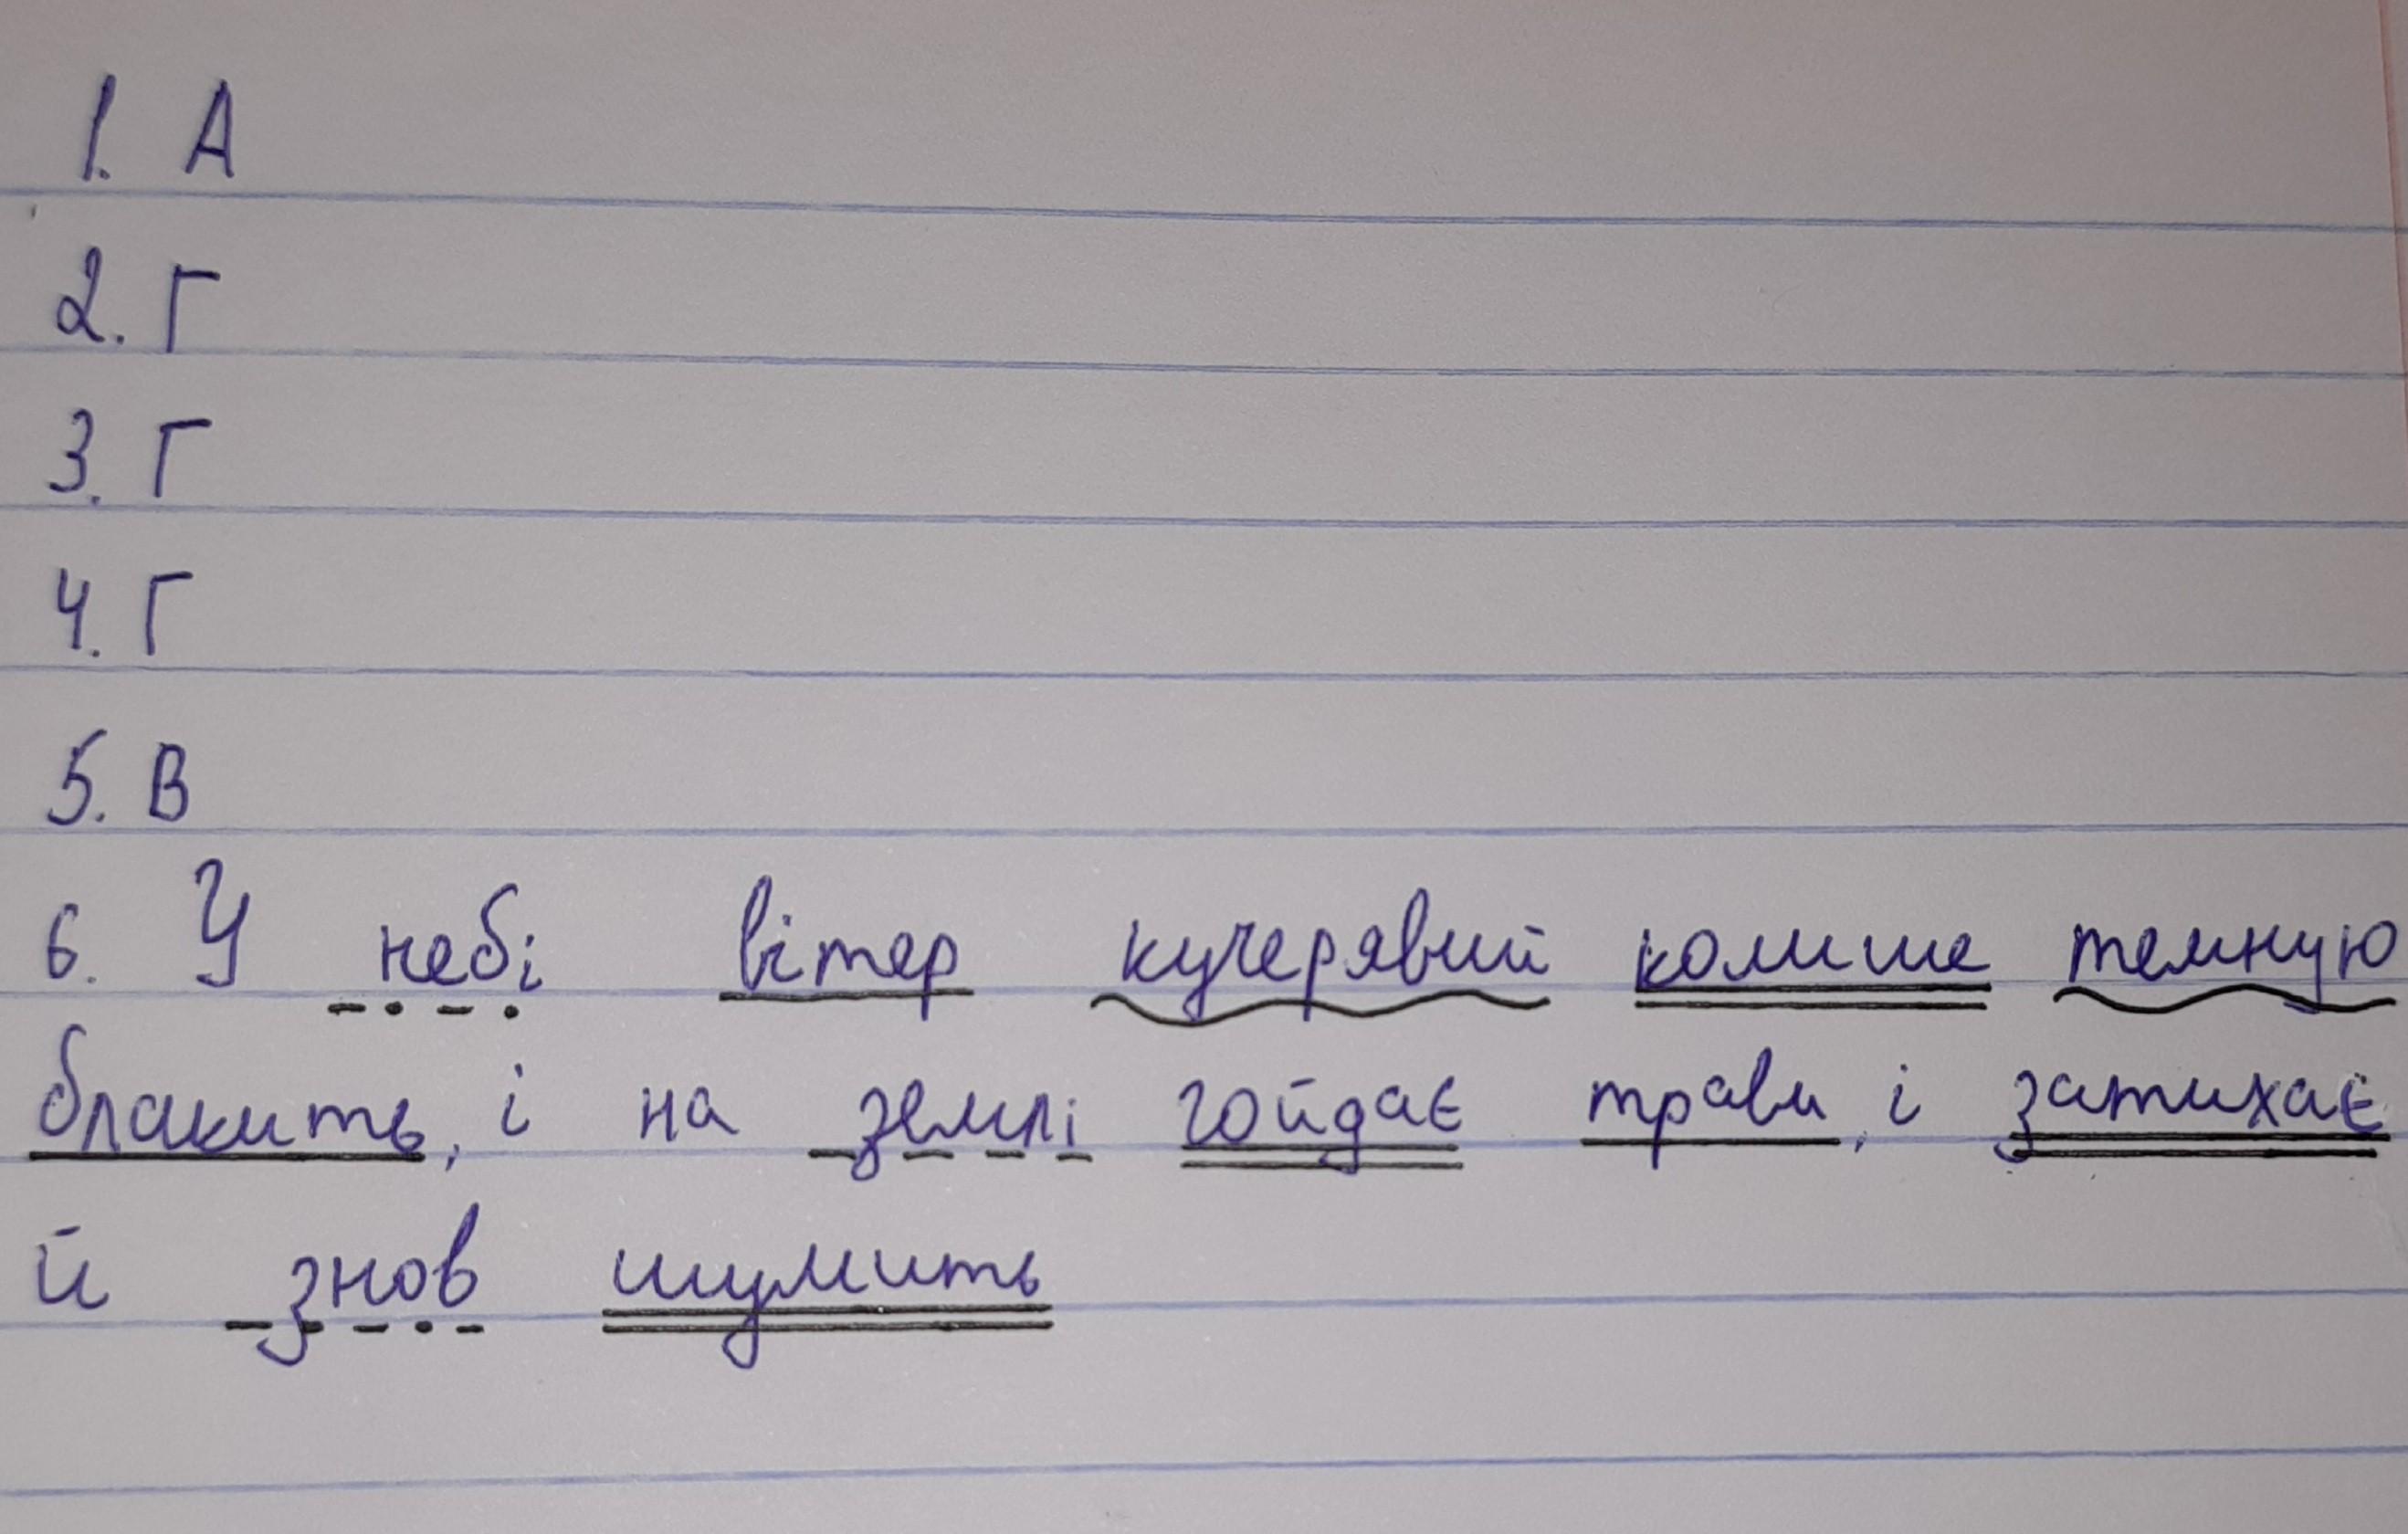 1. А
2. Г
3. Г
4. Г
5. В
6. У небі вітер кучерявий колише темную
блакить, і на землі гойдає трави, і затихає
й знов шумить